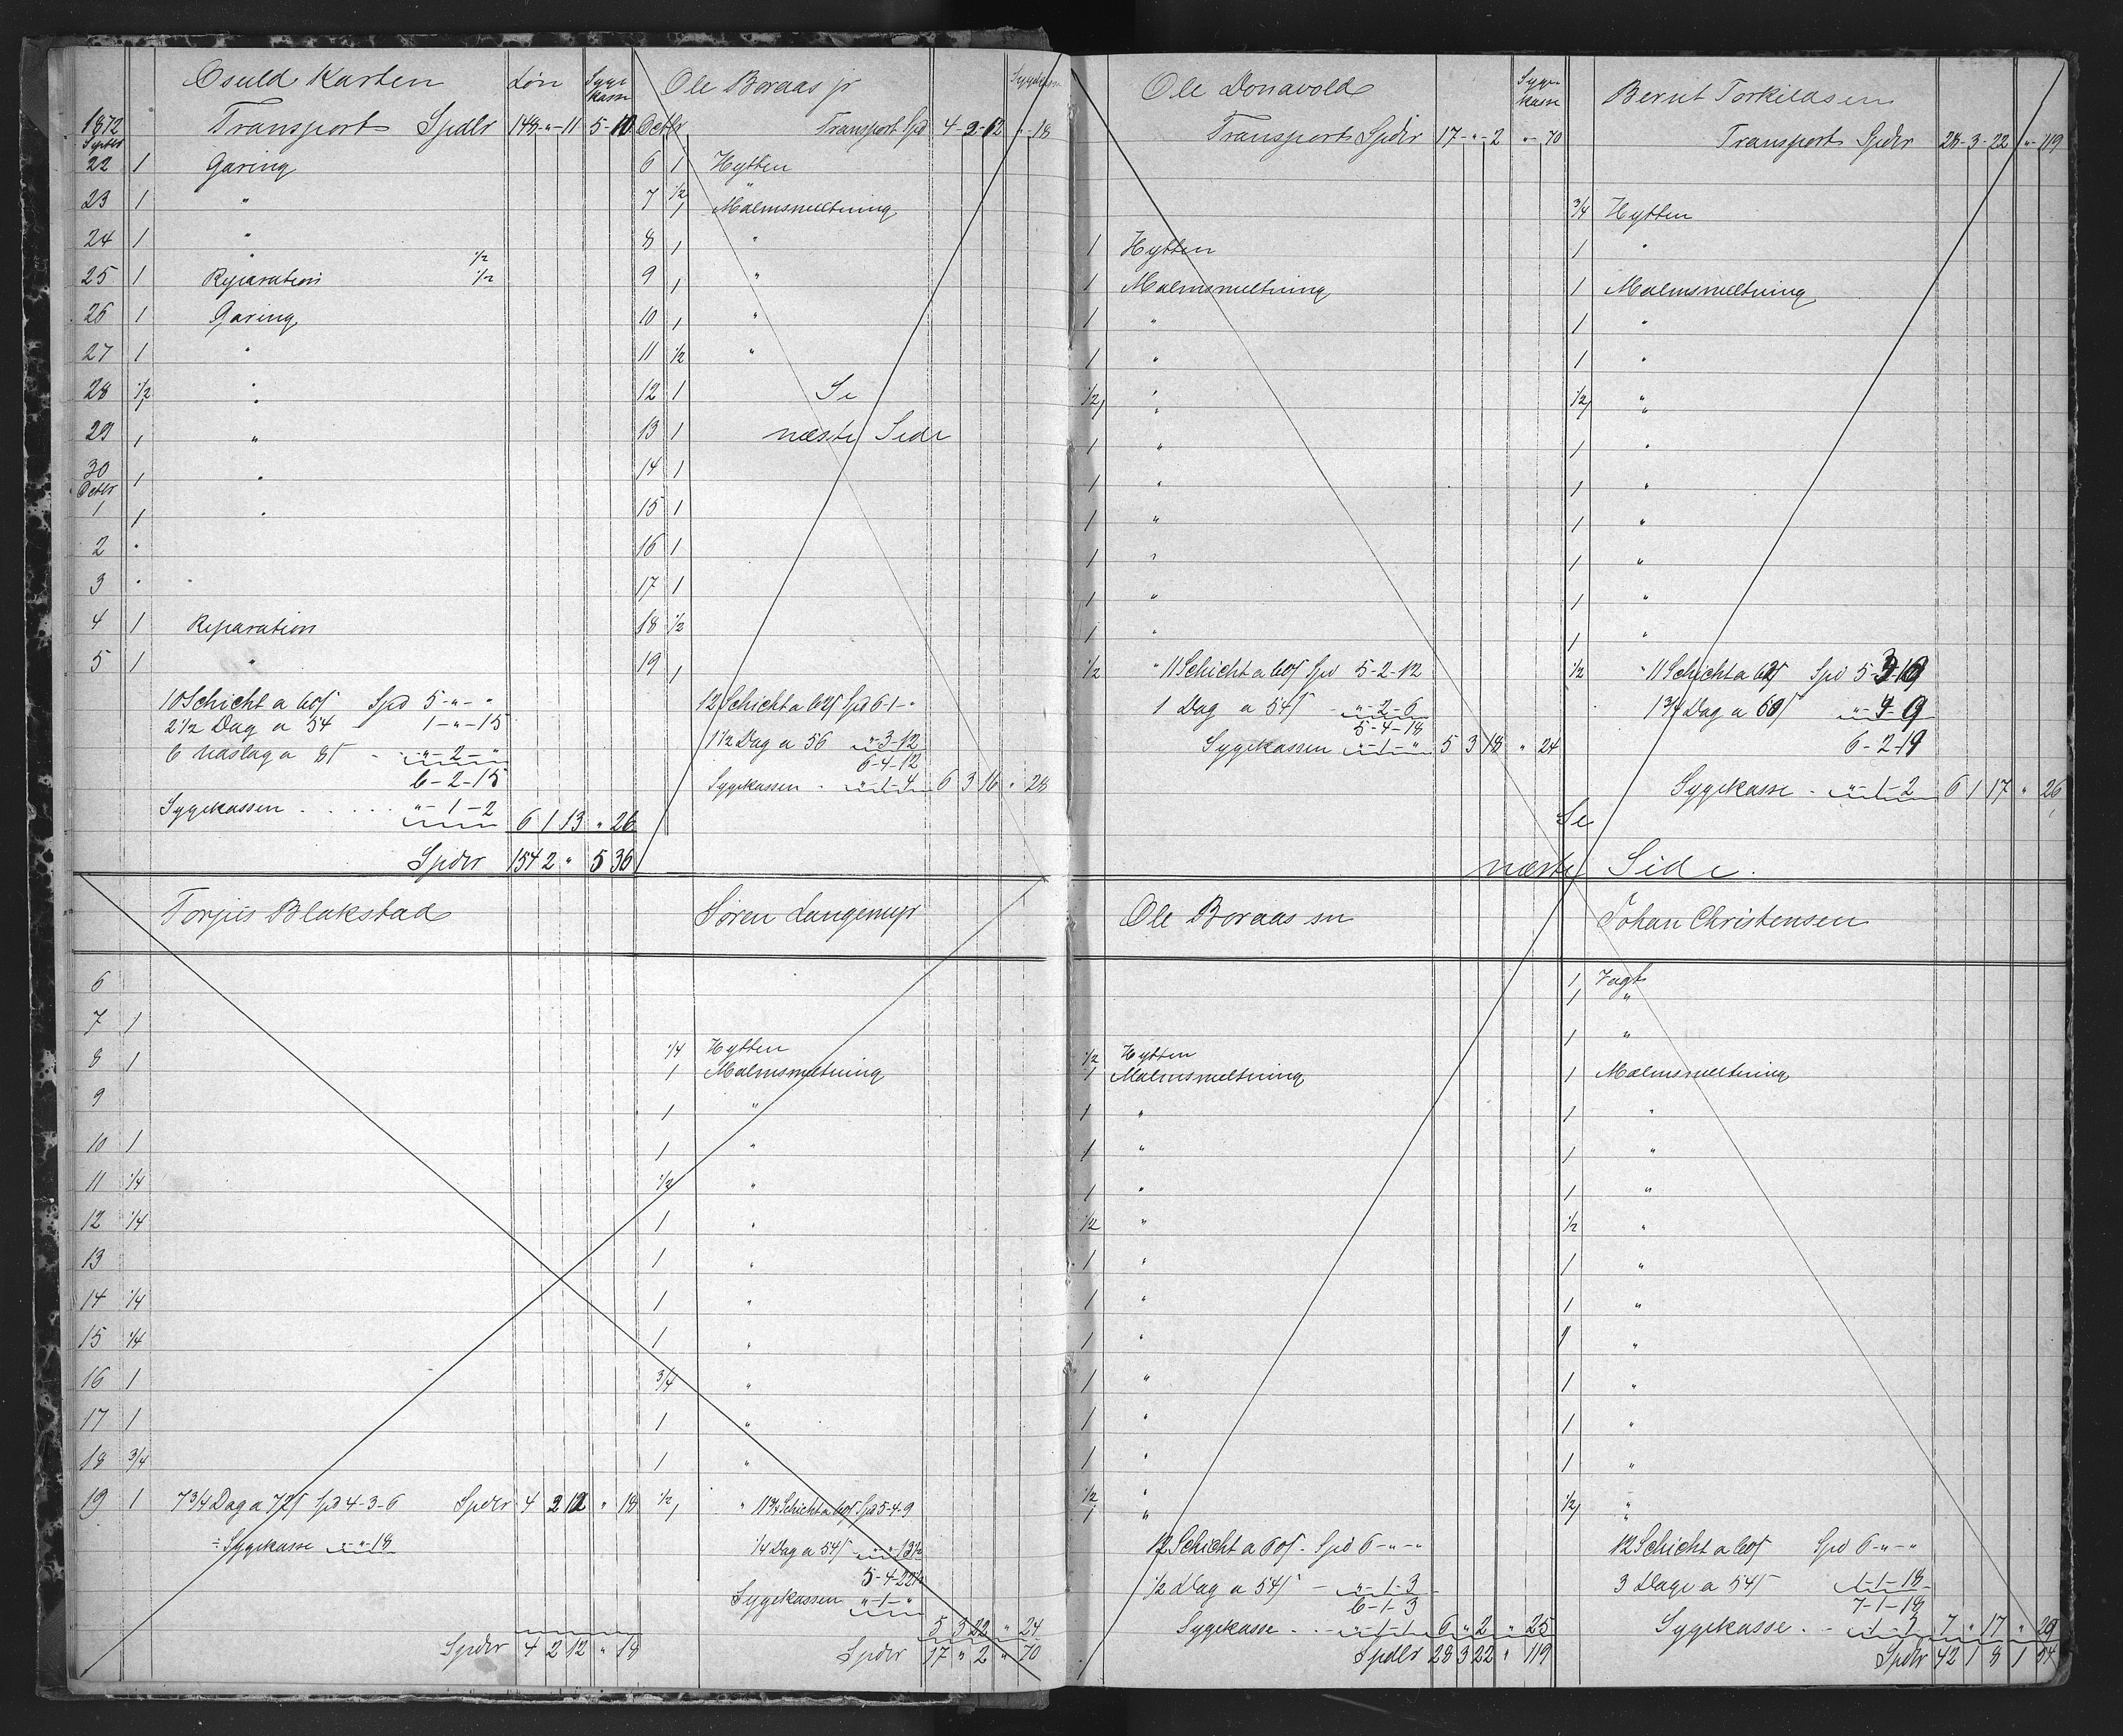 Osuld Karten Løn Syge
kasse
1872 Transport Spdlr 148 - " - 11 5 - 10
Septbr
22 1 Garing
23 1 "
24 1 "
" 1/2
25 1 Reparation 1/2
26 1 Garing
27 1 "
28 1/2 "
1 "
29 1 "
30 1 "
Octbr
1 1 "
2 "
3 " "
4 1 Reparation
5 1 "
10 Schicht a 60 s Spd 5 - " - "
2 1/2 Dag a 54 1 - " - 15
6 Udslag a 8 s " - 2 - "
6 - 2 - 15
Sygekassen . . . . . " - 1 - 2 6 1 13 " 26
Spdlr 154 2 " 5 36
Ole Boraas jr
Octbr Transport Spd 4 - 2 - 12 " - 18
6 1 Hytten
7 1/2 "
1 Malmsmeltning
8 1 "
9 1 "
10 1 "
11 1/2 "
12 1 Se
13 1 næste Side
14 1
15 1
16 1
17 1
18 1/2
19 1
12 Schicht a 62 s Spd 6 - 1 - "
1 1/2 Dag a 56 " - 3 - 12
6 - 4 - 12
Sygekassen . " - 1 - 4 6 3 16 " 28
Ole Donavold Syge
kasse
Transport Spdlr 17 - " - 2 " - 70
1 Hytten
1 Malmsmeltning
1 "
1 "
1/2 "
1 "
1 "
1 "
1 "
1 "
1 "
1 "
1/2 " 11 Schicht a 60 s Spd 5 - 2 - 12
1 Dag a 54 s " - 2 - 6
5 - 4 - 18
Sygekassen " - 1 - " 5 3 18 " 24
Bernt Torkildsen
Transport Spdlr 28 - 3 - 22 " - 119
3/4 Hytten
1 "
1 Malmsmeltning
1 "
1 "
1/2 "
1 "
1 "
1 "
1 "
1 "
1 "
1 "
1/2 " 11 Schicht a 62 s Spd 5 - 3 - 10
1 3/4 Dag a 60 s " - 4 - 9
6 - 2 - 19
Sygekasse . " - 1 - 2 6 1 17 " 26
Se
næste Side.
Torjus Blakstad
6
7 1
8 1
9
10 1
11 1/4
12 1/4
13
14 1/4
15 1/4
16 1
17 1
18 3/4
19 1 7 3/4 Dag a 72 s Spd 4 - 3 - 6 Spdlr 4 2 12 " 18
÷ Sygekasse " - " - 18
Spdlr 4 2 12 " 18
Søren Langemyr
1/4 Hytten
1 Malmsmeltning
1 "
1 "
1/2 "
1 "
1 "
1 "
1 "
3/4 "
1 "
1 "
1/2 1 " 11 3/4 Schicht a 60 s Spd 5 - 4 - 9
1/4 Dag a 54 s " - " - 13 1/2
5 - 4 - 22 1/2
Sygekassen " - 1 - "
5 3 22 " 24
Spdlr 17 " 2 " 70
Ole Boraas sn
1/2 Hytten
1 Malmsmeltning
1 "
1 "
1 "
1/2 "
1 "
1 "
1 "
1 "
1 "
1 "
1/2 "
1 "
12 Schicht a 60 s . Spd 6 - " - "
1/2 Dag a 54 s - " - 1 - 3
6 - 1 - 3
Sygekasse . . " - 1 - 1 6 " 2 " 25
Spdlr 28 3 22 " 119
Johan Christensen
1 Vagt
1 "
1 "
1 Malmsmeltning
1 "
1 "
1 "
1/2 "
1 "
1 "
1 "
1 "
1 "
1 "
1/2 1 "
12 Schicht a 60 s Spd 6 - " - "
3 Dage a 54 s 1 - 1 - 18
7 - 1 - 18
Sygekasse . . " - 1 - 7 " 17 " 29
Spdlr 42 1 8 1 54